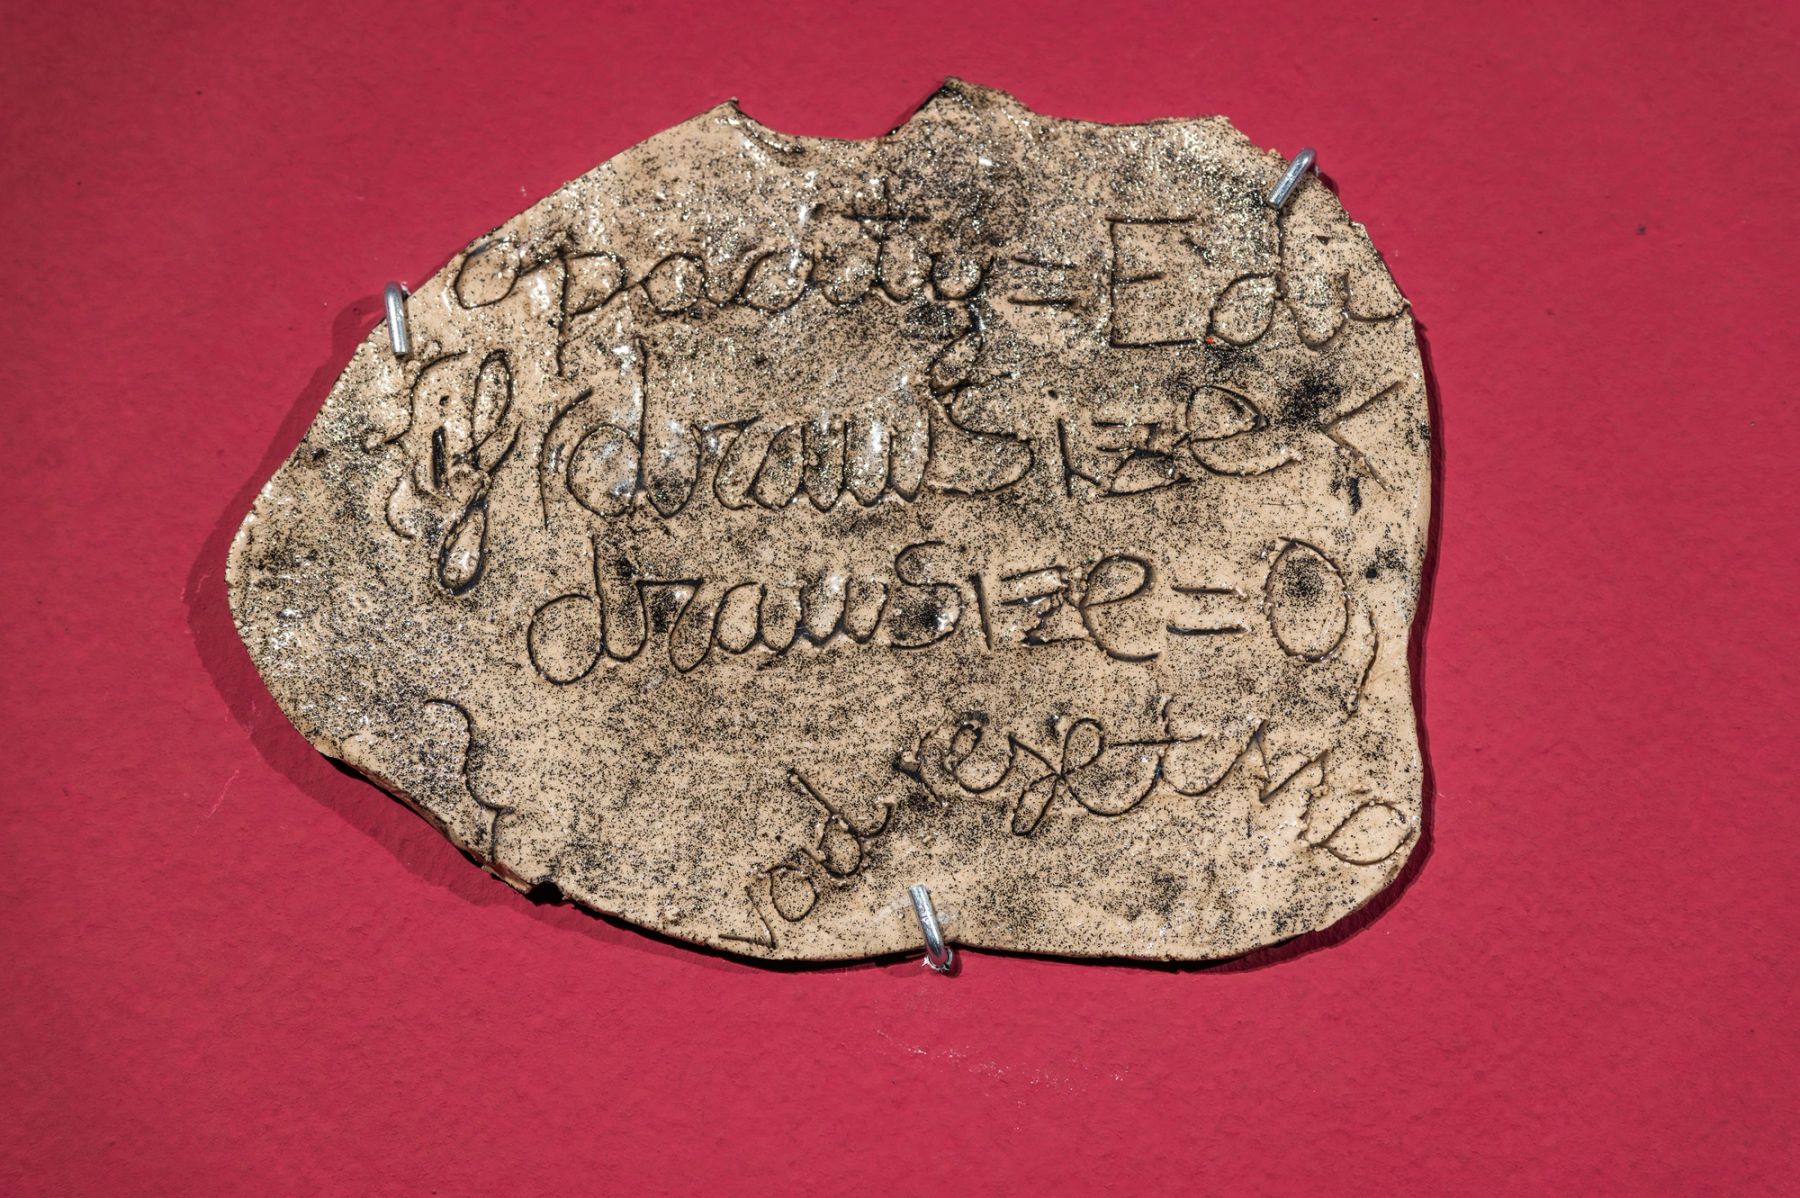 opacity = Edi
if (drawSize <
drawSize = 0;
}
void resetme